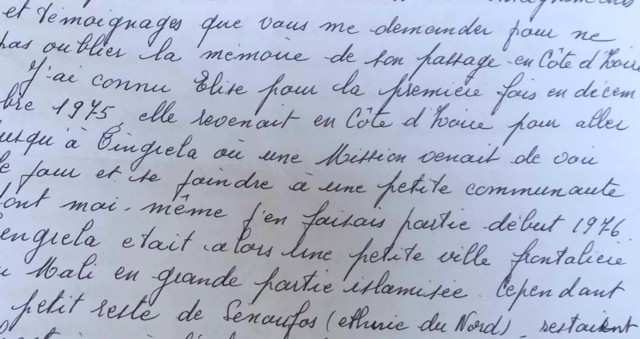 et témoignages que vous me demander pour ne
pas oublier la mémoire de son passage en Côte d'Ivoire
J'ai connu Elise pour la première fois en décem
bre 1975, elle revenait en Côte d'Ivoire pour aller
jusqu'à Tingrela où une Mission venait de voir
le jour et se joindre à une petite communauté
dont moi-même j'en faisais partie début 1976.
Tengrela était alors une petite ville frontalière
Mali en grande partie islamisée. Cependant
petit reste de Sénoufos (ethnie du Nord), restaient